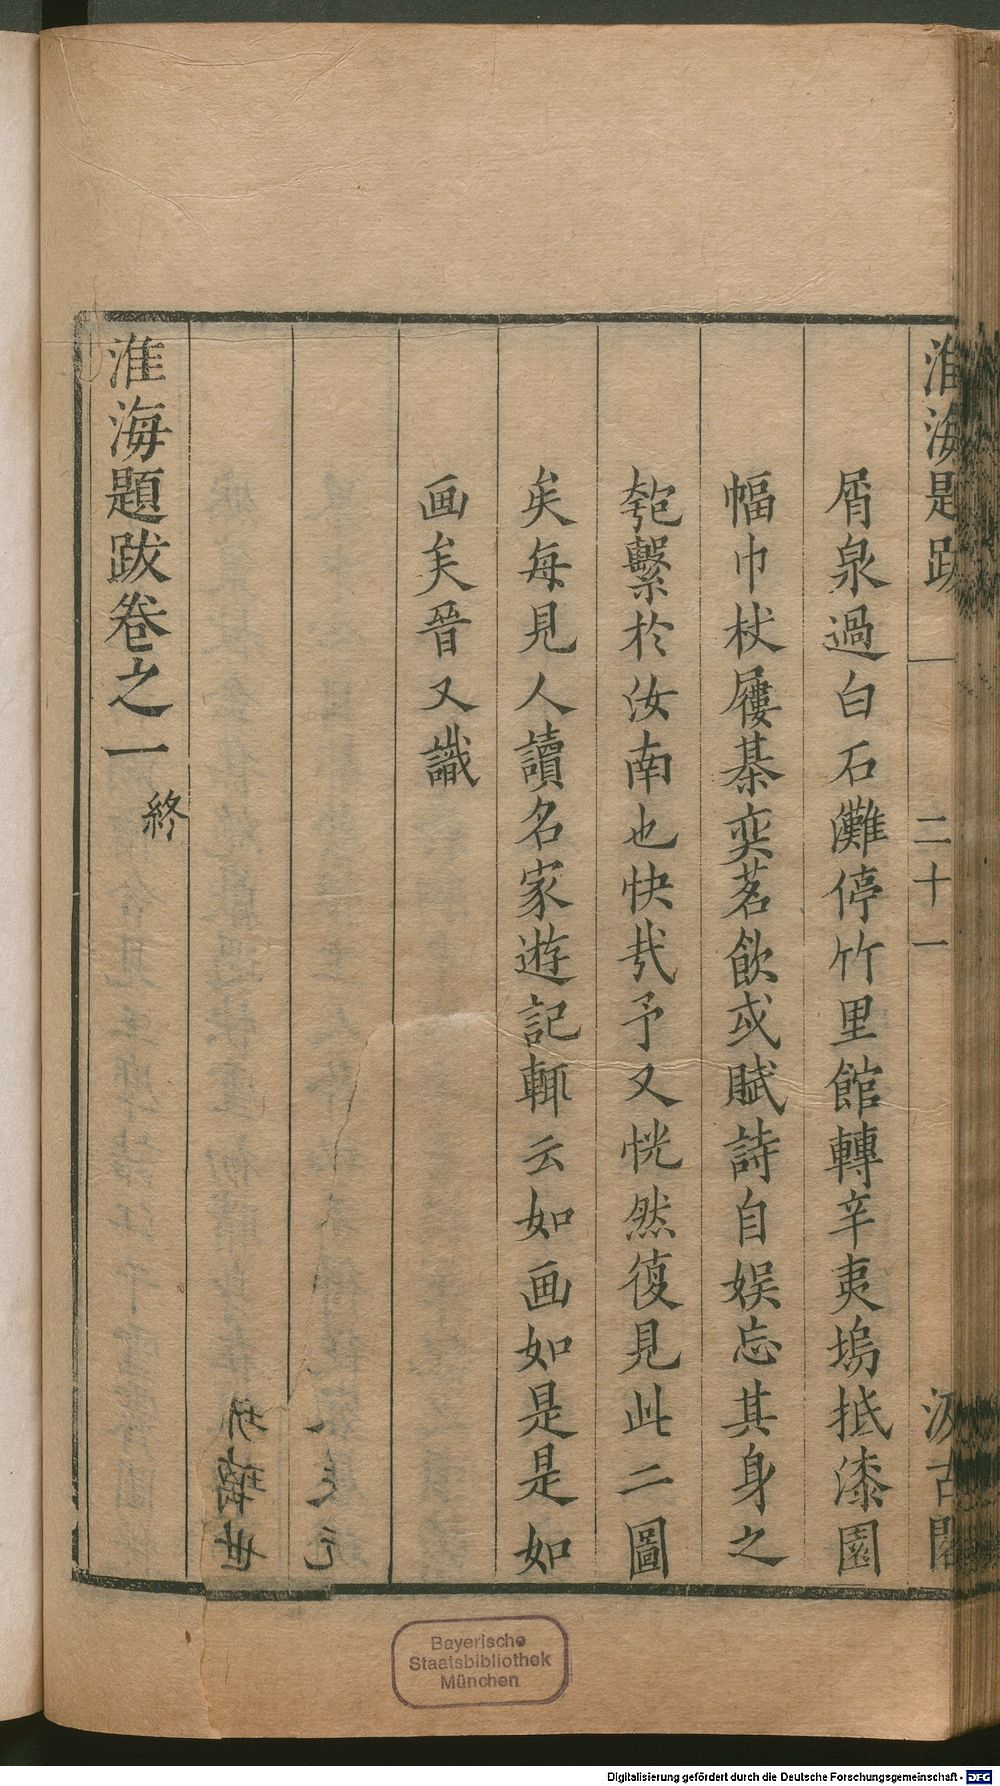 淮海題跋
二十一
汲古閣
屑泉過白石灘停竹里館轉辛夷塢抵漆園
幅巾杖屨棊奕茗飲或賦詩自娛忘其身之
匏繫於汝南也快哉予又恍然復見此二圖
矣每見人讀名家遊記輒云如画如是是如
画矣晉又識
淮海題跋卷之一
終
Bayerische
Staatsbibliothek
München
Digitalisierung gefördert durch die Deutsche Forschungsgemeinschaft - DFG